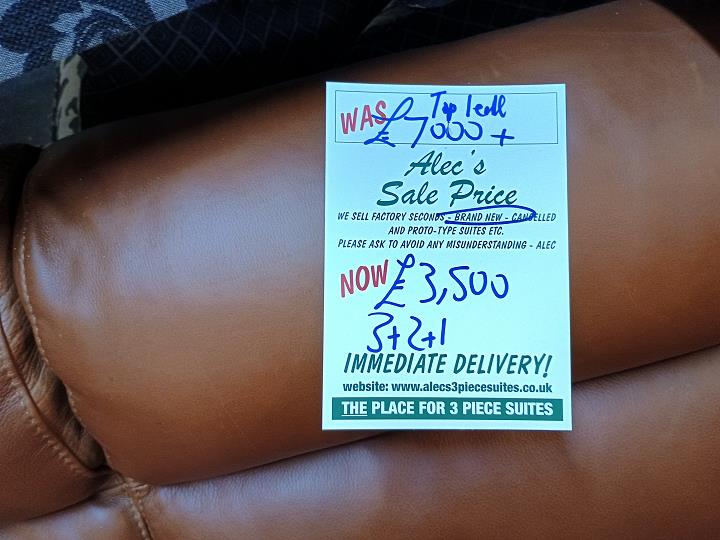 Top Leath
WAS £7000+
Alec's
Sale Price
WE SELL FACTORY SECONDS - BRAND NEW - CANCELLED
AND PROTO-TYPE SUITES ETC.
PLEASE ASK TO AVOID ANY MISUNDERSTANDING - ALEC
NOW £3,500
3+2+1
IMMEDIATE DELIVERY!
website: www.alecs3piecesuites.co.uk
THE PLACE FOR 3 PIECE SUITES